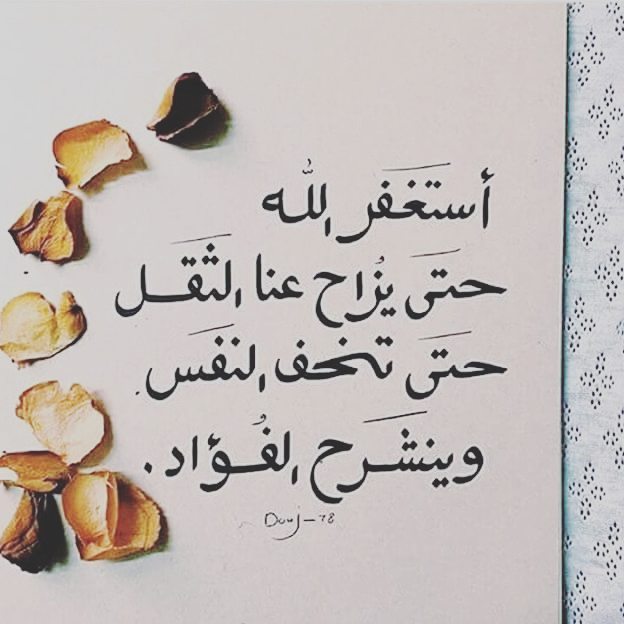 أستغفر الله
حتى يُزاح عنا الثقل
حتى تخف النفس.
وينشرح الفُؤاد.
Douj-78